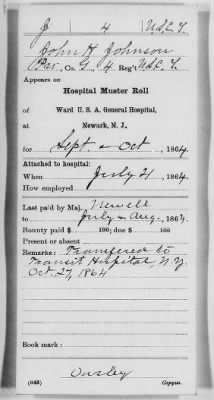 J 4 U.S.C.T.
John H Johnson
Pvt., Co. G, 4 Reg't U.S.C.T.
Appears on
Hospital Muster Roll
of
Ward U. S. A. General Hospital,
at
Newark, N. J.,
for Sept. & Oct, 1864.
Attached to hospital:
When July 21, 1864.
How employed
Last paid by Maj. Newell
to July & Aug., 1864.
Bounty paid $ 100; due $ 100
Present or absent
Remarks: Transfered to
Transit Hospital, N.Y.
Oct. 27, 1864
Book mark:
Ousley
(648) Copyist.